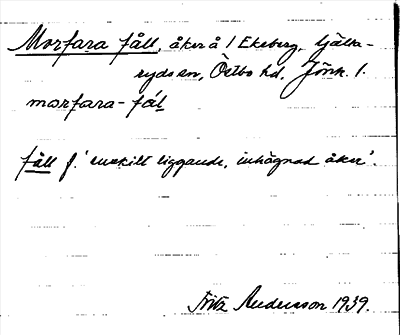 Morfara fåll, åker å 1 Ekeberg, Kjälla-
ryds sn, Östbo hd, Jönk. l.
morfara-fål
fåll f. 'enskilt liggande, inhägnad åker'.
Fritz Andersson 1939.